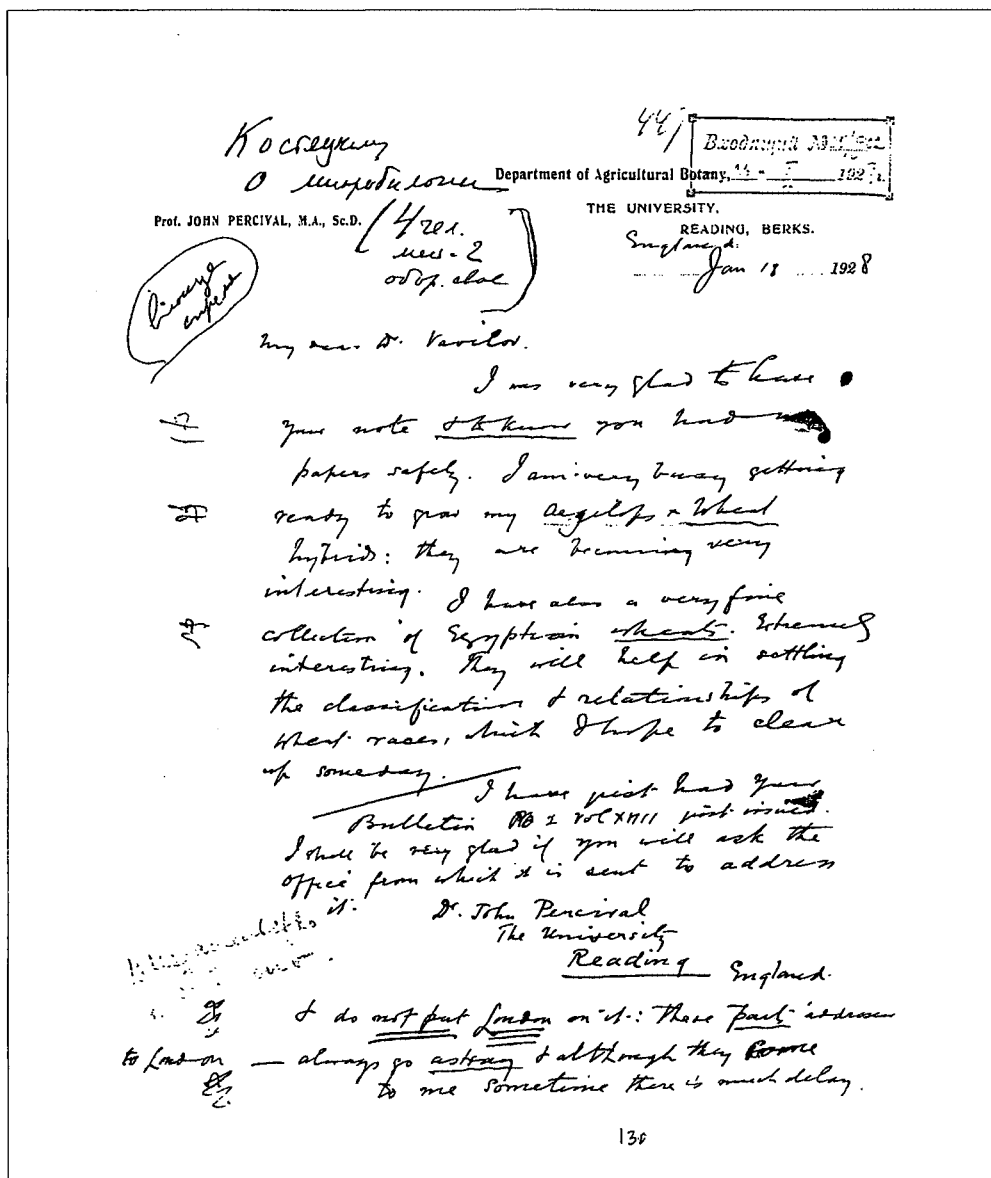 44/
Входящий №
192 г.
Department of Agricultural Botany,
Prof. JOHN PERCIVAL, M.A., Sc.D.
THE UNIVERSITY,
READING, BERKS.
England.
Jan 18 1928
My dear Dr. Vavilov.
I was very glad to have
your note & to know you had
papers safely. I am very busy getting
ready to grow my Aegilops × Wheat
hybrids: they are becoming very
interesting. I have also a very fine
collection of Egyptian wheats. Extremely
interesting. They will help in settling
the classification & relationships of
wheat races, which I hope to clear
up someday.
I have just had your
Bulletin vol XVII just issued.
I shall be very glad if you will ask the
office from which it is sent to address
it: Dr. John Percival
The University
Reading England.
& do not put London on it: These addresses
to London — always go astray & although they come
to me sometime there is much delay.
130